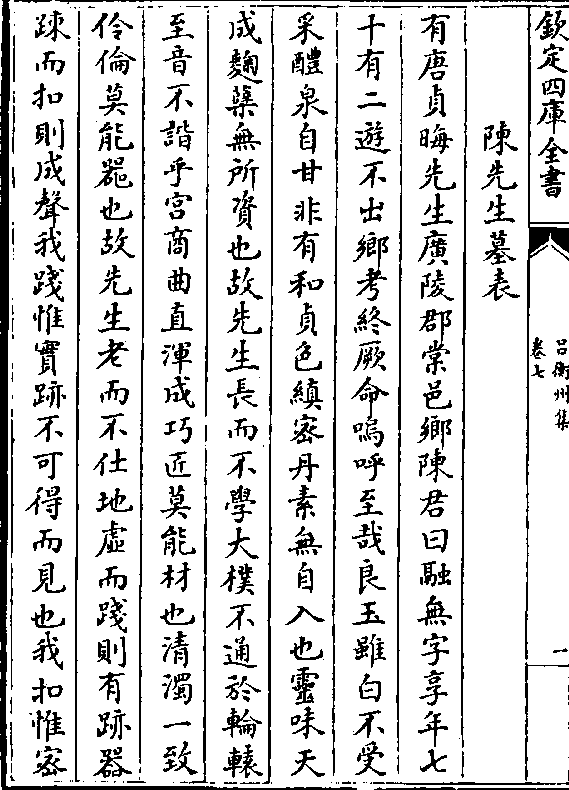 欽定四庫全書
吕衡州集
卷七
一
陳先生墓表
有唐貞晦先生廣陵郡棠邑鄉陳君曰融無字享年七
十有二遊不出鄉考終厥命嗚呼至哉良玉雖白不受
采醴泉自甘非有和貞色縝宻丹素無自入也靈味天
成麴糵無所資也故先生長而不學大樸不通於輪轅
至音不諧乎宫商曲直渾成巧匠莫能材也清濁一致
伶倫莫能器也故先生老而不仕地虚而踐則有跡器
踈而扣則成聲我踐惟實跡不可得而見也我扣惟宻